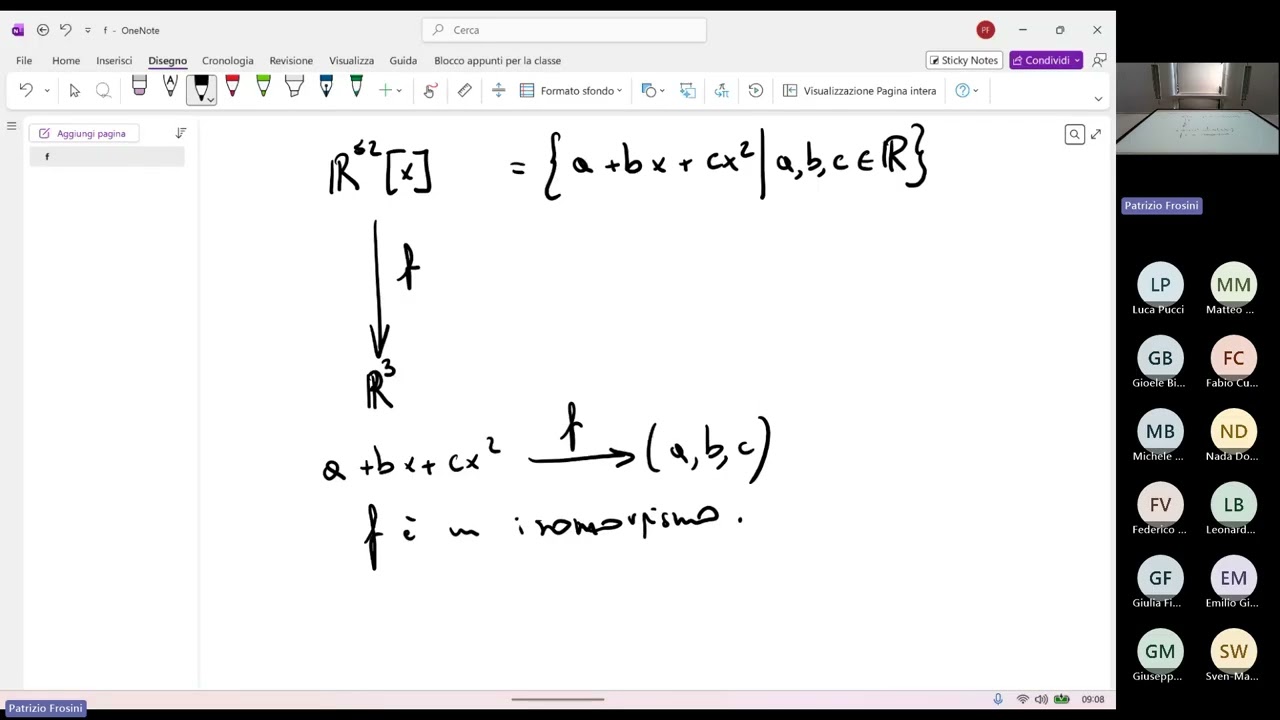 f - OneNote
Cerca
PF
File Home Inserisci Disegno Cronologia Revisione Visualizza Guida Blocco appunti per la classe
Sticky Notes Condividi
Formato sfondo Visualizzazione Pagina intera
Aggiungi pagina
f
ℝ^≤2 [x] = { a + b x + c x² | a, b, c ∈ ℝ }
f
ℝ³
a + b x + c x² f → (a, b, c)
f è un isomorfismo.
Patrizio Frosini
LP MM
Luca Pucci Matteo ...
GB FC
Gioele Bi... Fabio Cu...
MB ND
Michele ... Nada Do...
FV LB
Federico ... Leonard...
GF EM
Giulia Fi... Emilio Gi...
GM SW
Giusepp... Sven-Ma...
09:08
Patrizio Frosini